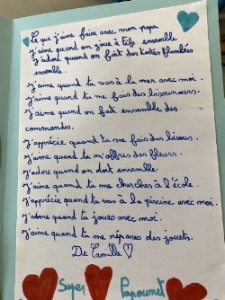 Ce que j'aime faire avec mon papa
j'aime quand on joue à ensemble
J'adore quand on fait des tartes flambées
ensemble.
J'aime quand tu vas à la mer avec moi.
j'aime quand tu me fais des
J'aime quand on fait ensemble des
commandes.
J'apprécie quand tu me fais des bisous.
J'aime quand tu m'offres des fleurs.
J'adore quand on dort ensemble.
J'aime quand tu me cherches à l'école.
J'apprécie quand tu vas à la piscine avec moi.
J'adore quand tu joues avec moi.
J'aime quand tu me répares des jouets.
De Camille
Super Papounet